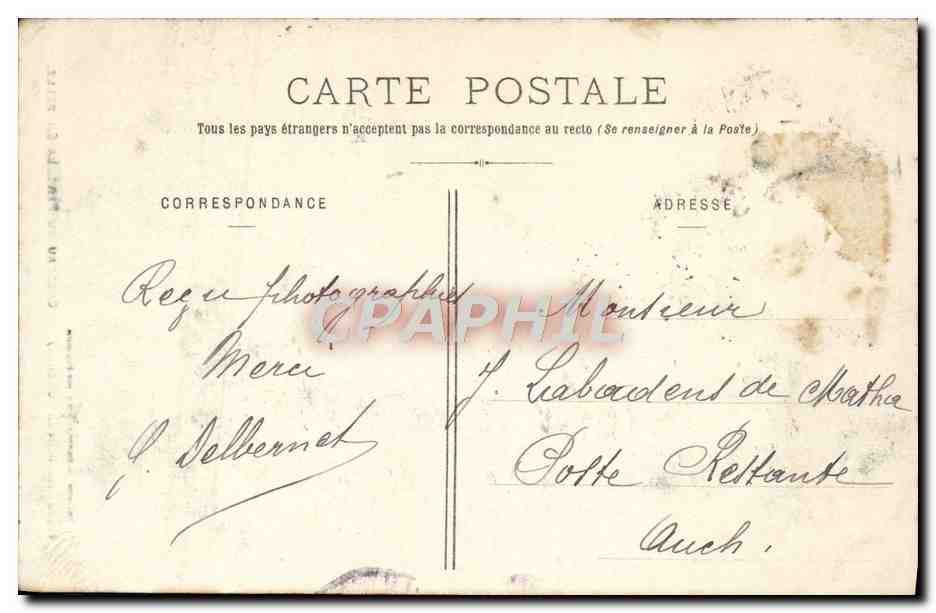 CARTE POSTALE
Tous les pays étrangers n'acceptent pas la correspondance au recto (Se renseigner à la Poste)
CORRESPONDANCE
Reçu photographies
Merci
Delbernet
ADRESSE
Monsieur
J. Labadens de Matha
Poste Restante
Auch.
CPAPHIL